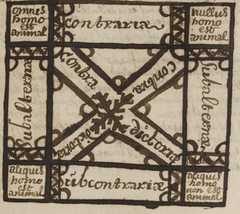 omnis
homo
est
animal
contrariæ
nullus
homo
est
animal
Subalternæ
contra
contra
Subalternæ
dictoriæ
dictoriæ
aliquis
homo
est
animal
subcontrariæ
aliquis
homo
non est
animal